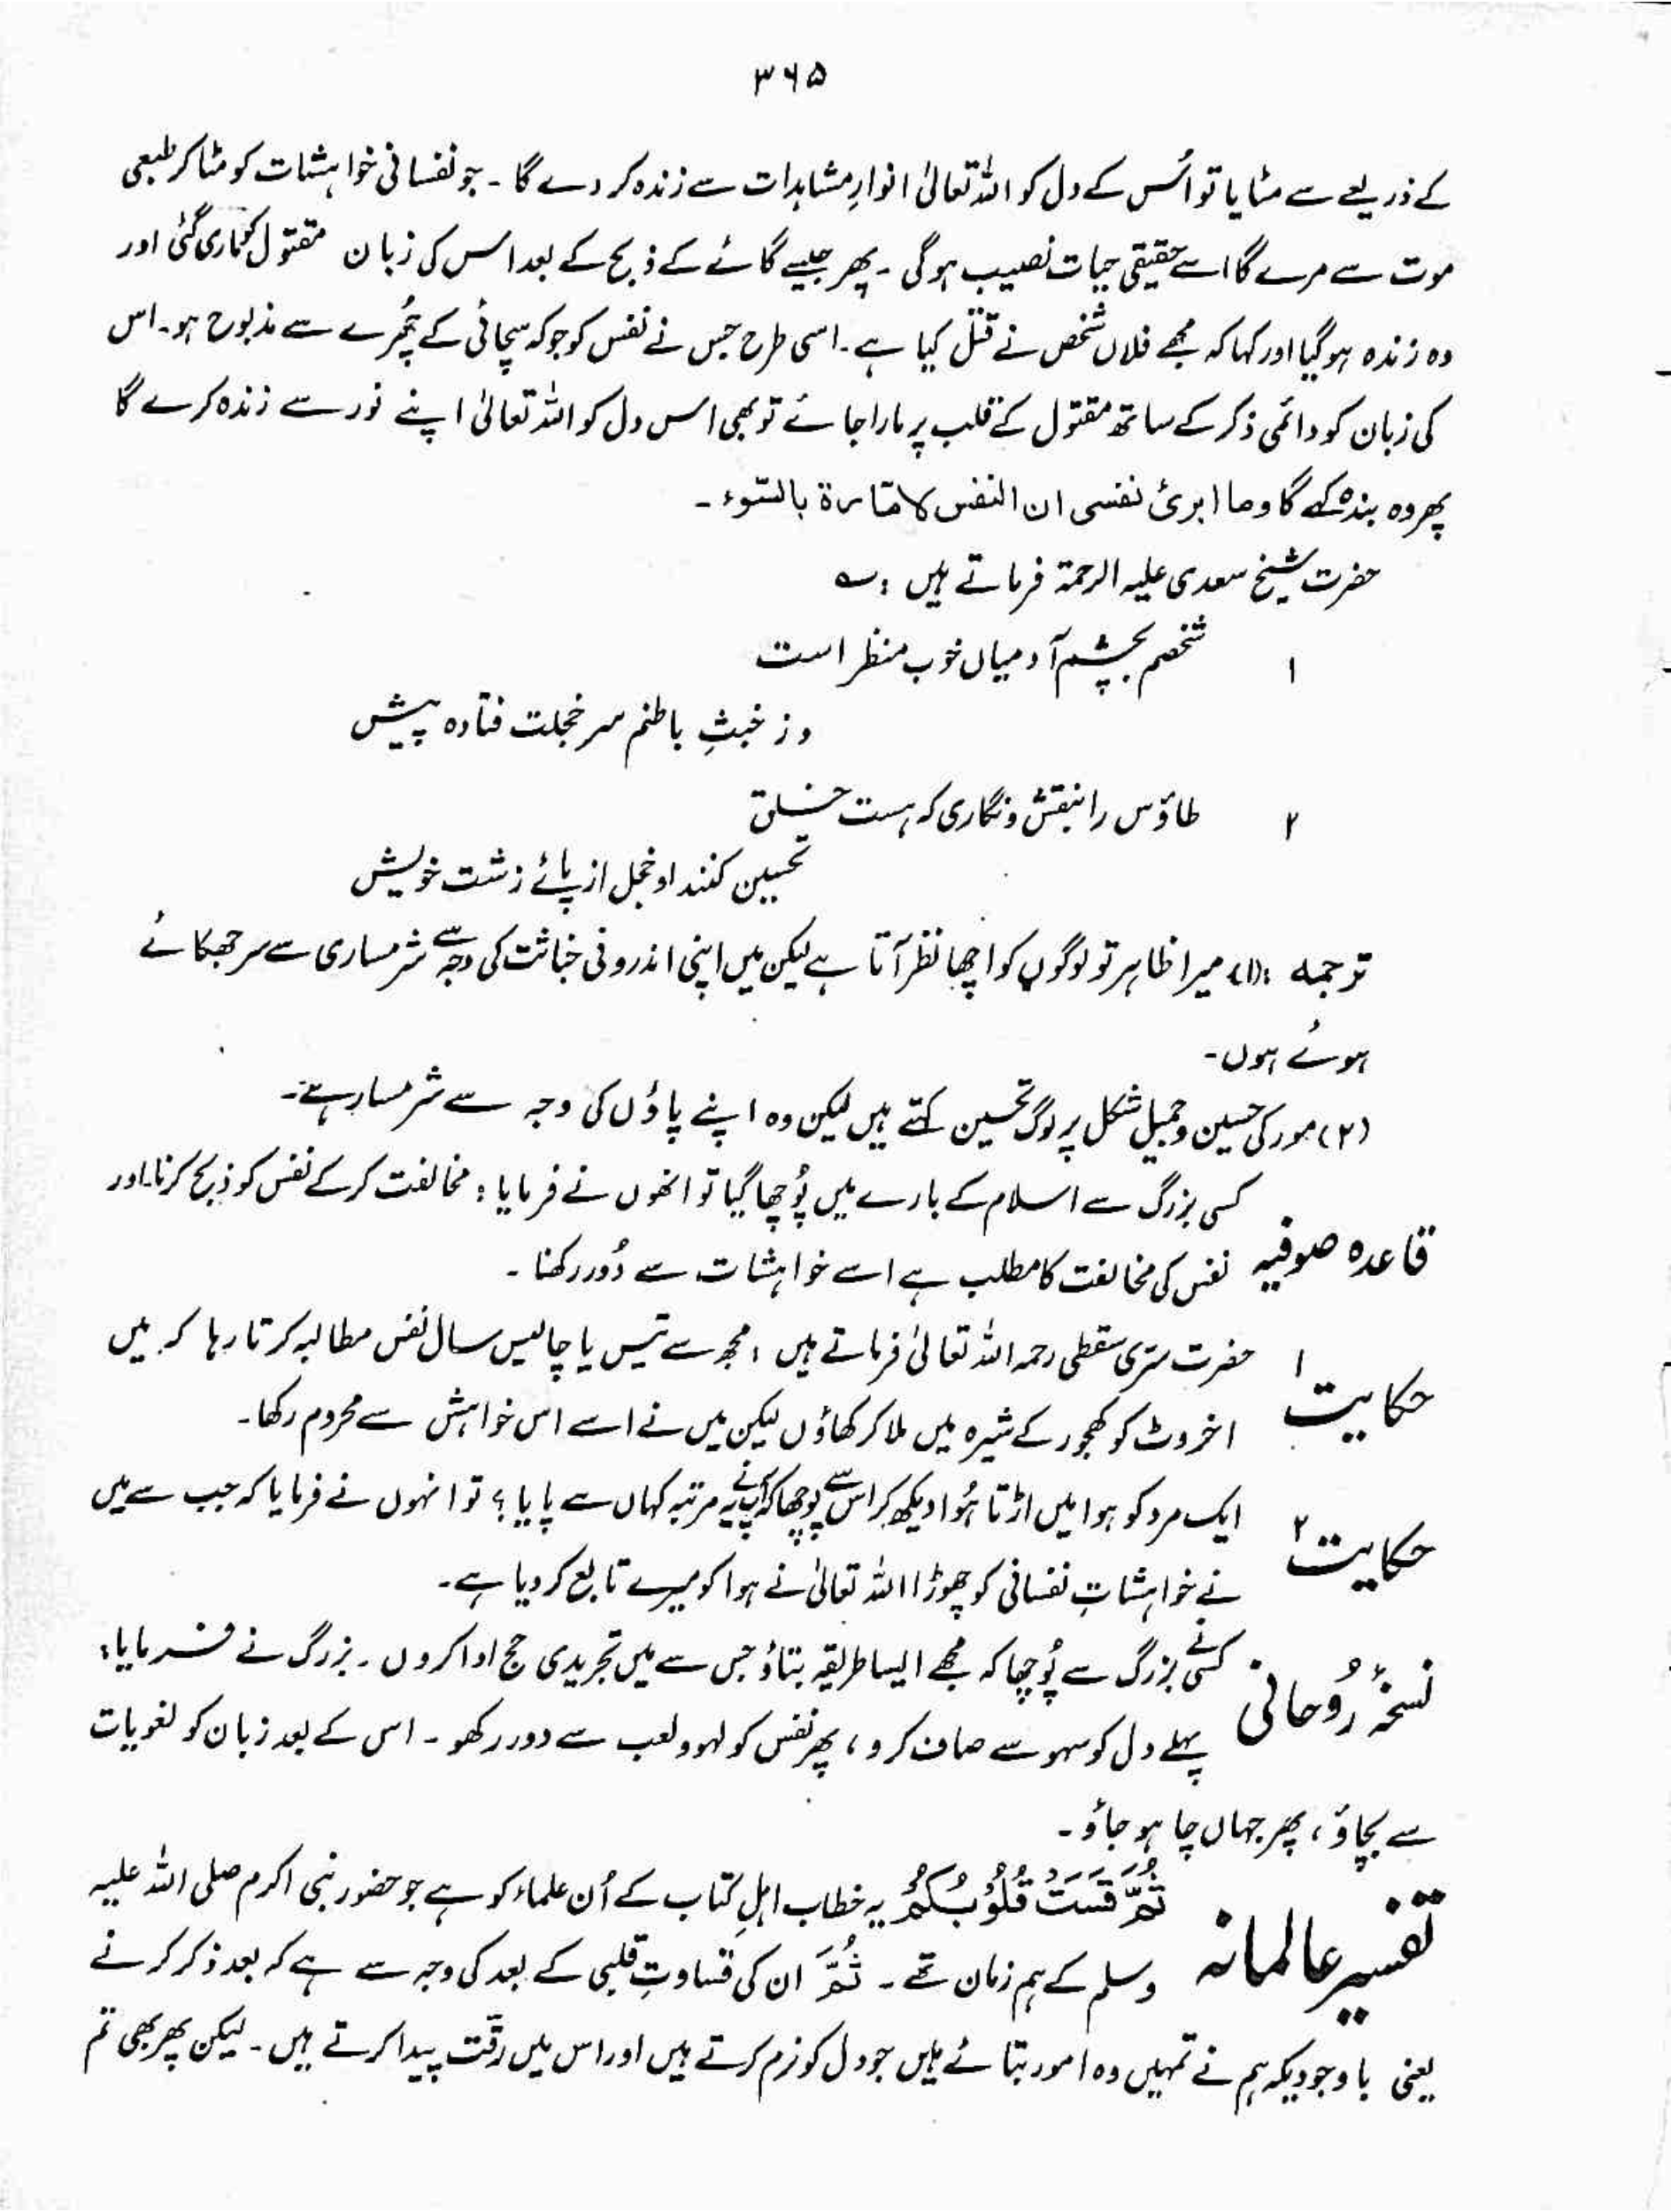 ۳۶۵
کے ذریعے سے مٹایا تو اُس کے دل کو اللہ تعالیٰ انوارِ مشاہدات سے زندہ کر دے گا ۔ جو نفسانی خواہشات کو مٹا کر طبعی
موت سے مرے گا اسے حقیقی حیات نصیب ہوگی ۔ پھر جیسے گائے کے ذبح کے بعد اس کی زبان مقتول کو ماری گئی اور
وہ زندہ ہو گیا اور کہا کہ مجھے فلاں شخص نے قتل کیا ہے ۔ اسی طرح جس نے نفس کو جو کہ سچائی کے چُھرے سے مذبوح ہو ۔ اس
کی زبان کو دائمی ذکر کے ساتھ مقتول کے قلب پر مارا جائے تو بھی اس دل کو اللہ تعالیٰ اپنے نور سے زندہ کرے گا
پھر وہ بندہ کہے گا وما ابرئ نفسی ان النفس لامّارۃ بالسّوء ۔
حضرت شیخ سعدی علیہ الرحمۃ فرماتے ہیں : ؎
۱ شخصم بچشم آدمیاں خوب منظر است
وز خبثِ باطنم سر خجلت فتادہ پیش
۲ طاؤس را بنقش و نگاری کہ ہست خلق
تحسین کنند او خجل از پائے زشت خویش
ترجمہ : (۱) میرا ظاہر تو لوگوں کو اچھا نظر آتا ہے لیکن میں اپنی اندرونی خباثت کی وجہ سے شرمساری سے سر جھکائے
ہوئے ہوں ۔
(۲) مور کی حسین و جمیل شکل پر لوگ تحسین کہتے ہیں لیکن وہ اپنے پاؤں کی وجہ سے شرمسار ہے ۔
قاعدہ صوفیہ کسی بزرگ سے اسلام کے بارے میں پُوچھا گیا تو انھوں نے فرمایا : مخالفت کر کے نفس کو ذبح کرنا ۔ اور
نفس کی مخالفت کا مطلب ہے اسے خواہشات سے دُور رکھنا ۔
حکایت ۱ حضرت سَری سقطی رحمہ اللہ تعالیٰ فرماتے ہیں : مجھ سے تیس یا چالیس سال نفس مطالبہ کرتا رہا کہ میں
اخروٹ کو کھجور کے شیرہ میں ملا کر کھاؤں لیکن میں نے اسے اس خواہش سے محروم رکھا ۔
حکایت ۲ ایک مرد کو ہوا میں اڑتا ہُوا دیکھ کر اس سے پوچھا کہ آپ نے یہ مرتبہ کہاں سے پایا ؟ تو انہوں نے فرمایا کہ جب سے میں
نے خواہشاتِ نفسانی کو چھوڑا اللہ تعالیٰ نے ہوا کو میرے تابع کر دیا ہے ۔
نسخۂ رُوحانی کسی نے بزرگ سے پُوچھا کہ مجھے ایسا طریقہ بتاؤ جس سے میں تجریدی حج ادا کروں ۔ بزرگ نے فرمایا :
پہلے دل کو سہو سے صاف کرو ، پھر نفس کو لہو و لعب سے دور رکھو ۔ اس کے بعد زبان کو لغویات
سے بچاؤ ، پھر جہاں چاہو جاؤ ۔
تفسیر عالمانہ ثُمَّ قَسَتْ قُلُوْبُكُمْ یہ خطاب اہلِ کتاب کے اُن علماء کو ہے جو حضور نبی اکرم صلی اللہ علیہ
وسلم کے ہم زمان تھے ۔ ثُمَّ ان کی قساوتِ قلبی کے بعد کی وجہ سے ہے کہ بعد ذکر کرنے
یعنی باوجودیکہ ہم نے تمہیں وہ امور بتائے ہیں جو دل کو نرم کرتے ہیں اور اس میں رقّت پیدا کرتے ہیں ۔ لیکن پھر بھی تم